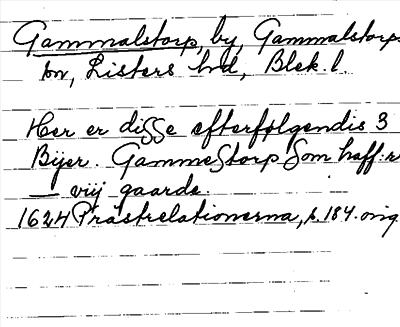 Gammalstorp, by, Gammalstorps
sn, Listers hd, Blek. l.
Her er disse efterfølgendis 3
Bÿer. Gammestorp som haff:r
— vıȷ gaarde.
1624 Prästrelationerna, p. 184. orig.